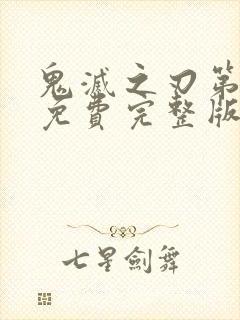 鬼滅之刃第
免費完整版
七星劍舞